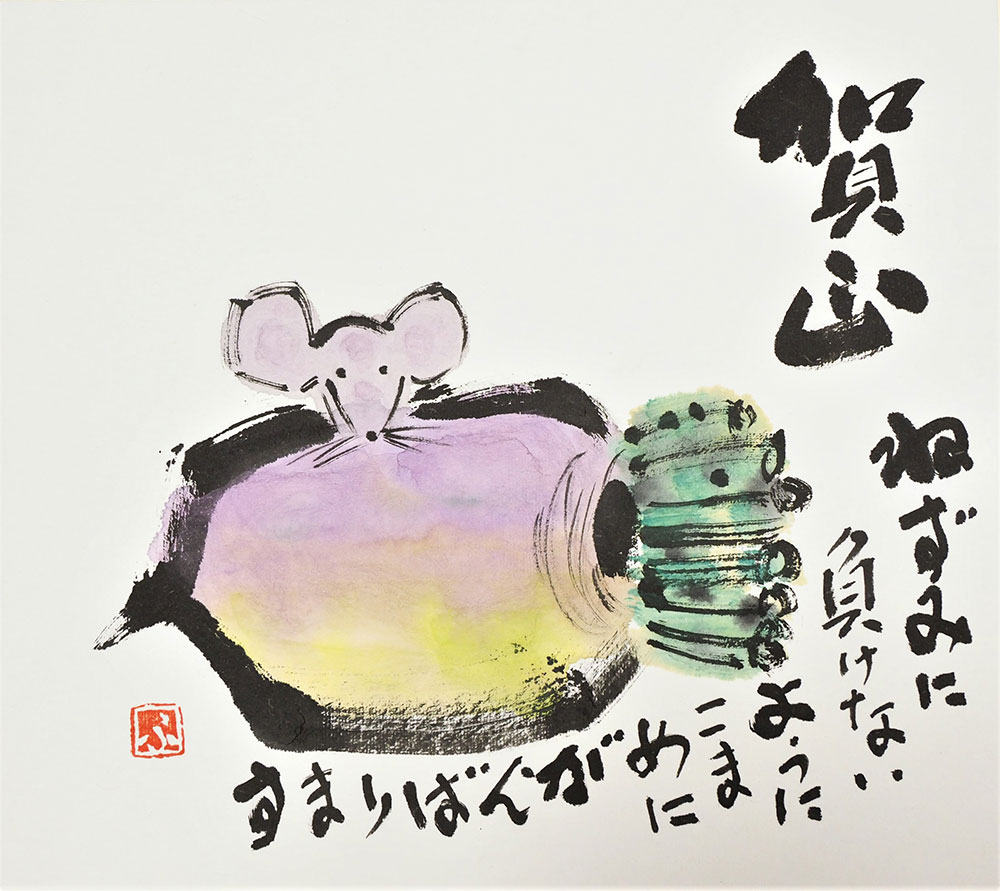 賀正
ねずみに
負けない
ように
こま
めに
がんばります
ふ